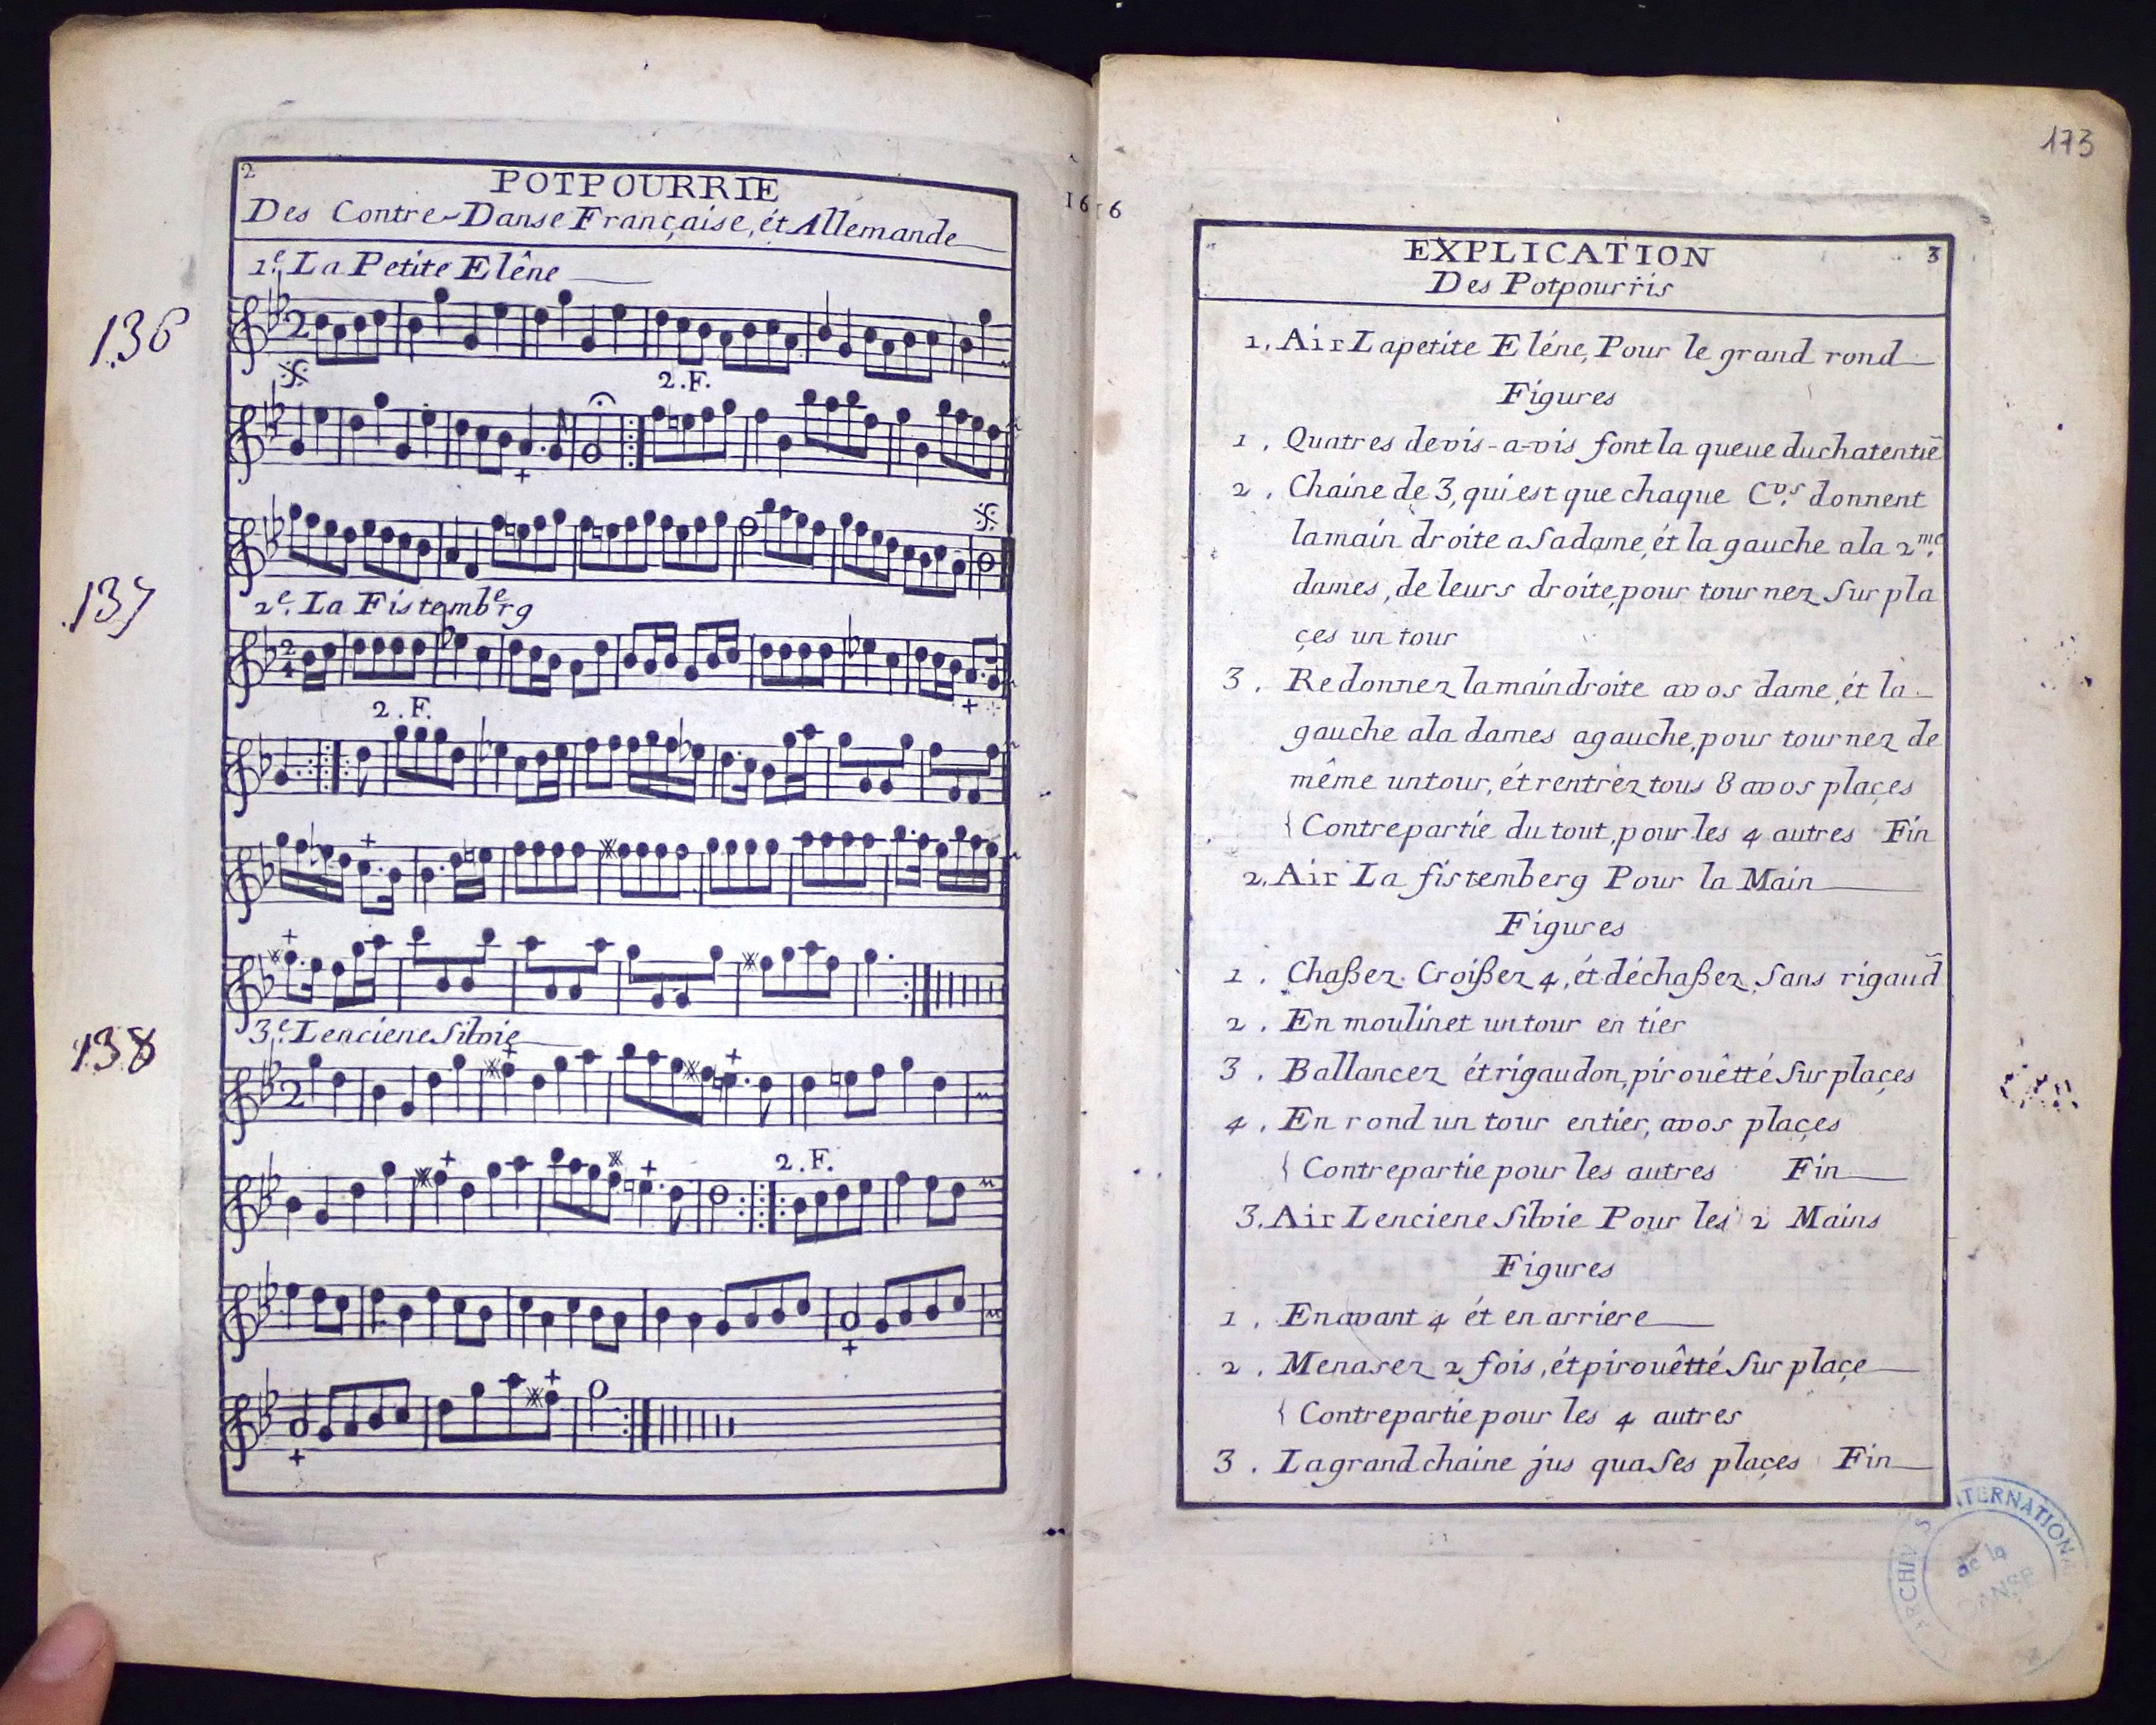 2
POTPOURRIE
Des Contre-Danse Française, ét Allemande
1e. La Petite Elêne
136
2
2.F.
137
2e. La Fistemberg
2
4
2.F.
138
3e. Lenciene Silvie
2
2.F.
16
16
173
EXPLICATION
3
Des Potpourris
1. Air Lapetite Eléne, Pour le grand rond
Figures
1. Quatres devis-a-vis font la queue duchatentiē
2. Chaine de 3, qui est que chaque Cv.s donnent
lamain droite a Sadame, ét la gauche ala 2me.
dames, de leurs droite, pour tournez Sur pla
çes un tour
3. Redonnez lamaindroite avos dame, ét la
gauche ala dames agauche, pour tournez de
même untour, ét rentrèz tous 8 avos plaçes
{ Contrepartie du tout, pour les 4 autres Fin
2. Air La fistemberg Pour la Main
Figures
1. Chaßez Croißez 4, ét déchaßez Sans rigaud̄
2. En moulinet untour en tier
3. Ballancez ét rigaudon, pirouêtté Sur plaçes
4. En rond un tour entier, avos plaçes
{ Contrepartie pour les autres Fin
3. Air Lenciene Silvie Pour les 2 Mains
Figures
1. Enavant 4 ét en arriere
2. Menasez 2 fois, ét pirouêtté Sur plaçe
{ Contrepartie pour les 4 autres
3. Lagrand chaine jus qua Ses plaçes Fin
de la
DANSE